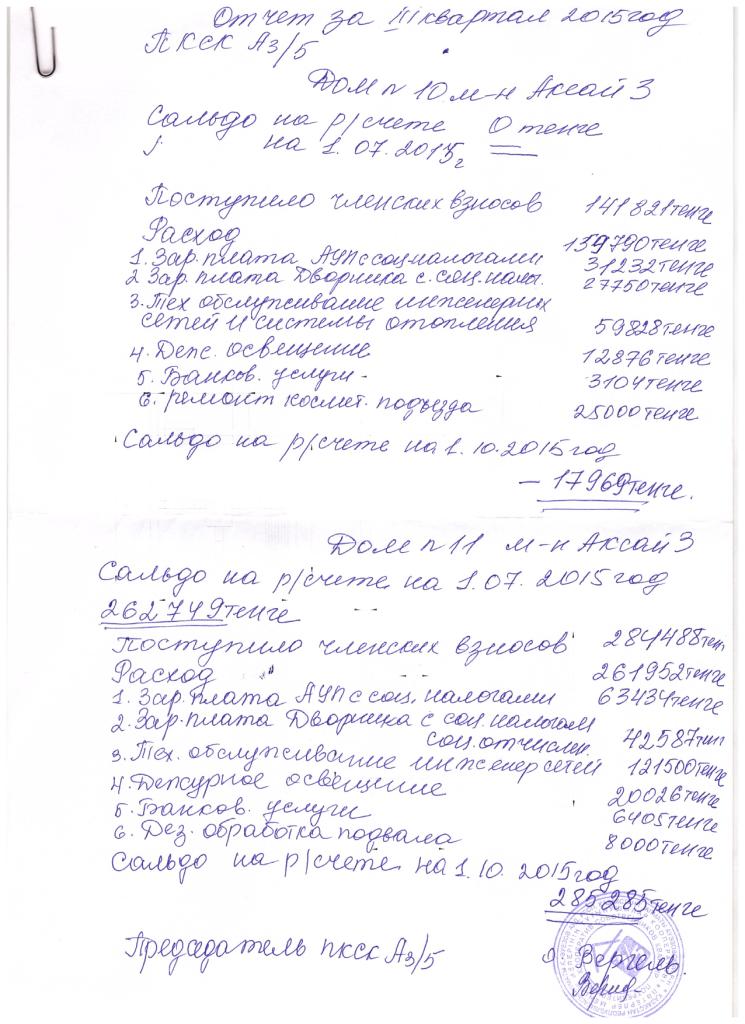 Отчет за III квартал 2015 год
ПКСК Аз/5
Дом № 10 м-н Аксай 3
Сальдо на р/счете 0 тенге
на 1.07.2015г
Поступило членских взносов 141821 тенге
Расход 159790 тенге
1. Зар. плата АУП с соц. налогами 31232 тенге
2 Зар. плата Дворника с. соц. налог. 27750 тенге
3. Тех обслуживание инженерных
сетей и системы отопления 59828 тенге
4. Деж. освещение 12876 тенге
5. Банков. услуги - 3104 тенге
6. ремонт космет. подъезда 25000 тенге
Сальдо на р/счете на 1.10.2015 год
- 17969 тенге.
Дом № 11 м-н Аксай 3
Сальдо на р/счете на 1.07.2015 год
262749 тенге
Поступило членских взносов 284488 тен
Расход 261952 тенге
1. Зар. плата АУП с соц. налогами 63434 тенге
2. Зар. плата Дворника с соц. налогом
соц. отчислен. 42587 тенг
3. Тех. обслуживание инженер сетей 121500 тенге
4. Дежурное освещение 20026 тенге
5. Банков. услуги 6405 тенге
6. Дез. обработка подвала 8000 тенге
Сальдо на р/счете на 1.10.2015 год
285285 тенге
Председатель ПКСК Аз/5 Вергель.